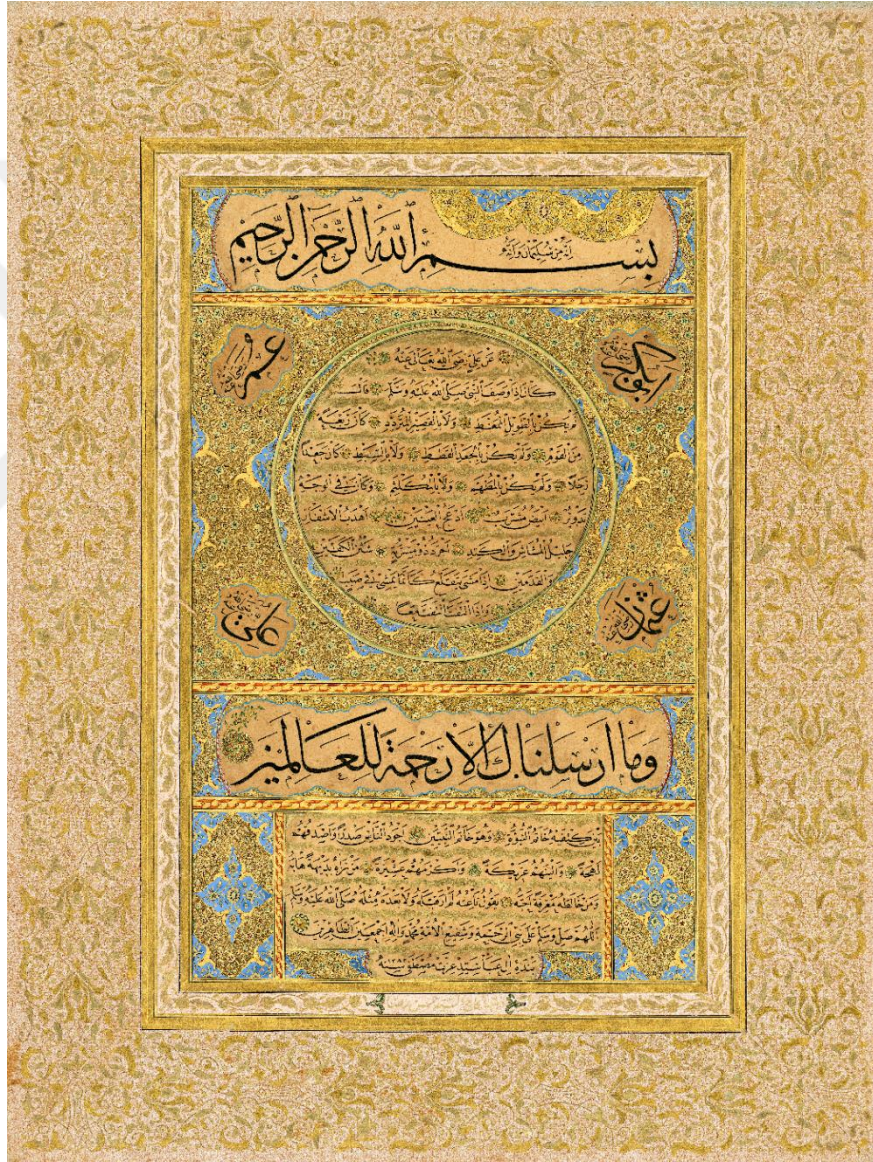 بسم الله الرحمن الرحيم
إنه من سليمان وإنه
ابوبكر
عمر
عن علي رضي الله تعالى عنه
كان اذا وصف النبي صلى الله عليه وسلم قال
لم يكن بالطويل الممغط ولا بالقصير المتردد كان ربعة
من القوم ولم يكن بالجعد القطط ولا بالسبط كان جعدا
رجلا ولم يكن بالمطهم ولا بالمكلثم وكان في الوجه
تدوير ابيض مشرب ادعج العينين اهدب الاشفار
جليل المشاش والكتد اجرد ذو مسربة شثن الكفين
والقدمين اذا مشى يتقلع كانما يمشي في صبب
واذا التفت التفت معا
عثمان
علي
وما ارسلناك الا رحمة للعالمين
بين كتفيه خاتم النبوة وهو خاتم النبيين اجود الناس صدرا واصدقهم
لهجة والينهم عريكة واكرمهم عشيرة من رآه بديهة هابه
ومن خالطه معرفة احبه يقول ناعته لم ار قبله ولا بعده مثله صلى الله عليه وسلم
اللهم صل وسلم على نبي الرحمة وشفيع الامة محمد وآله اجمعين الطاهرين
سيد عزت مصطفى